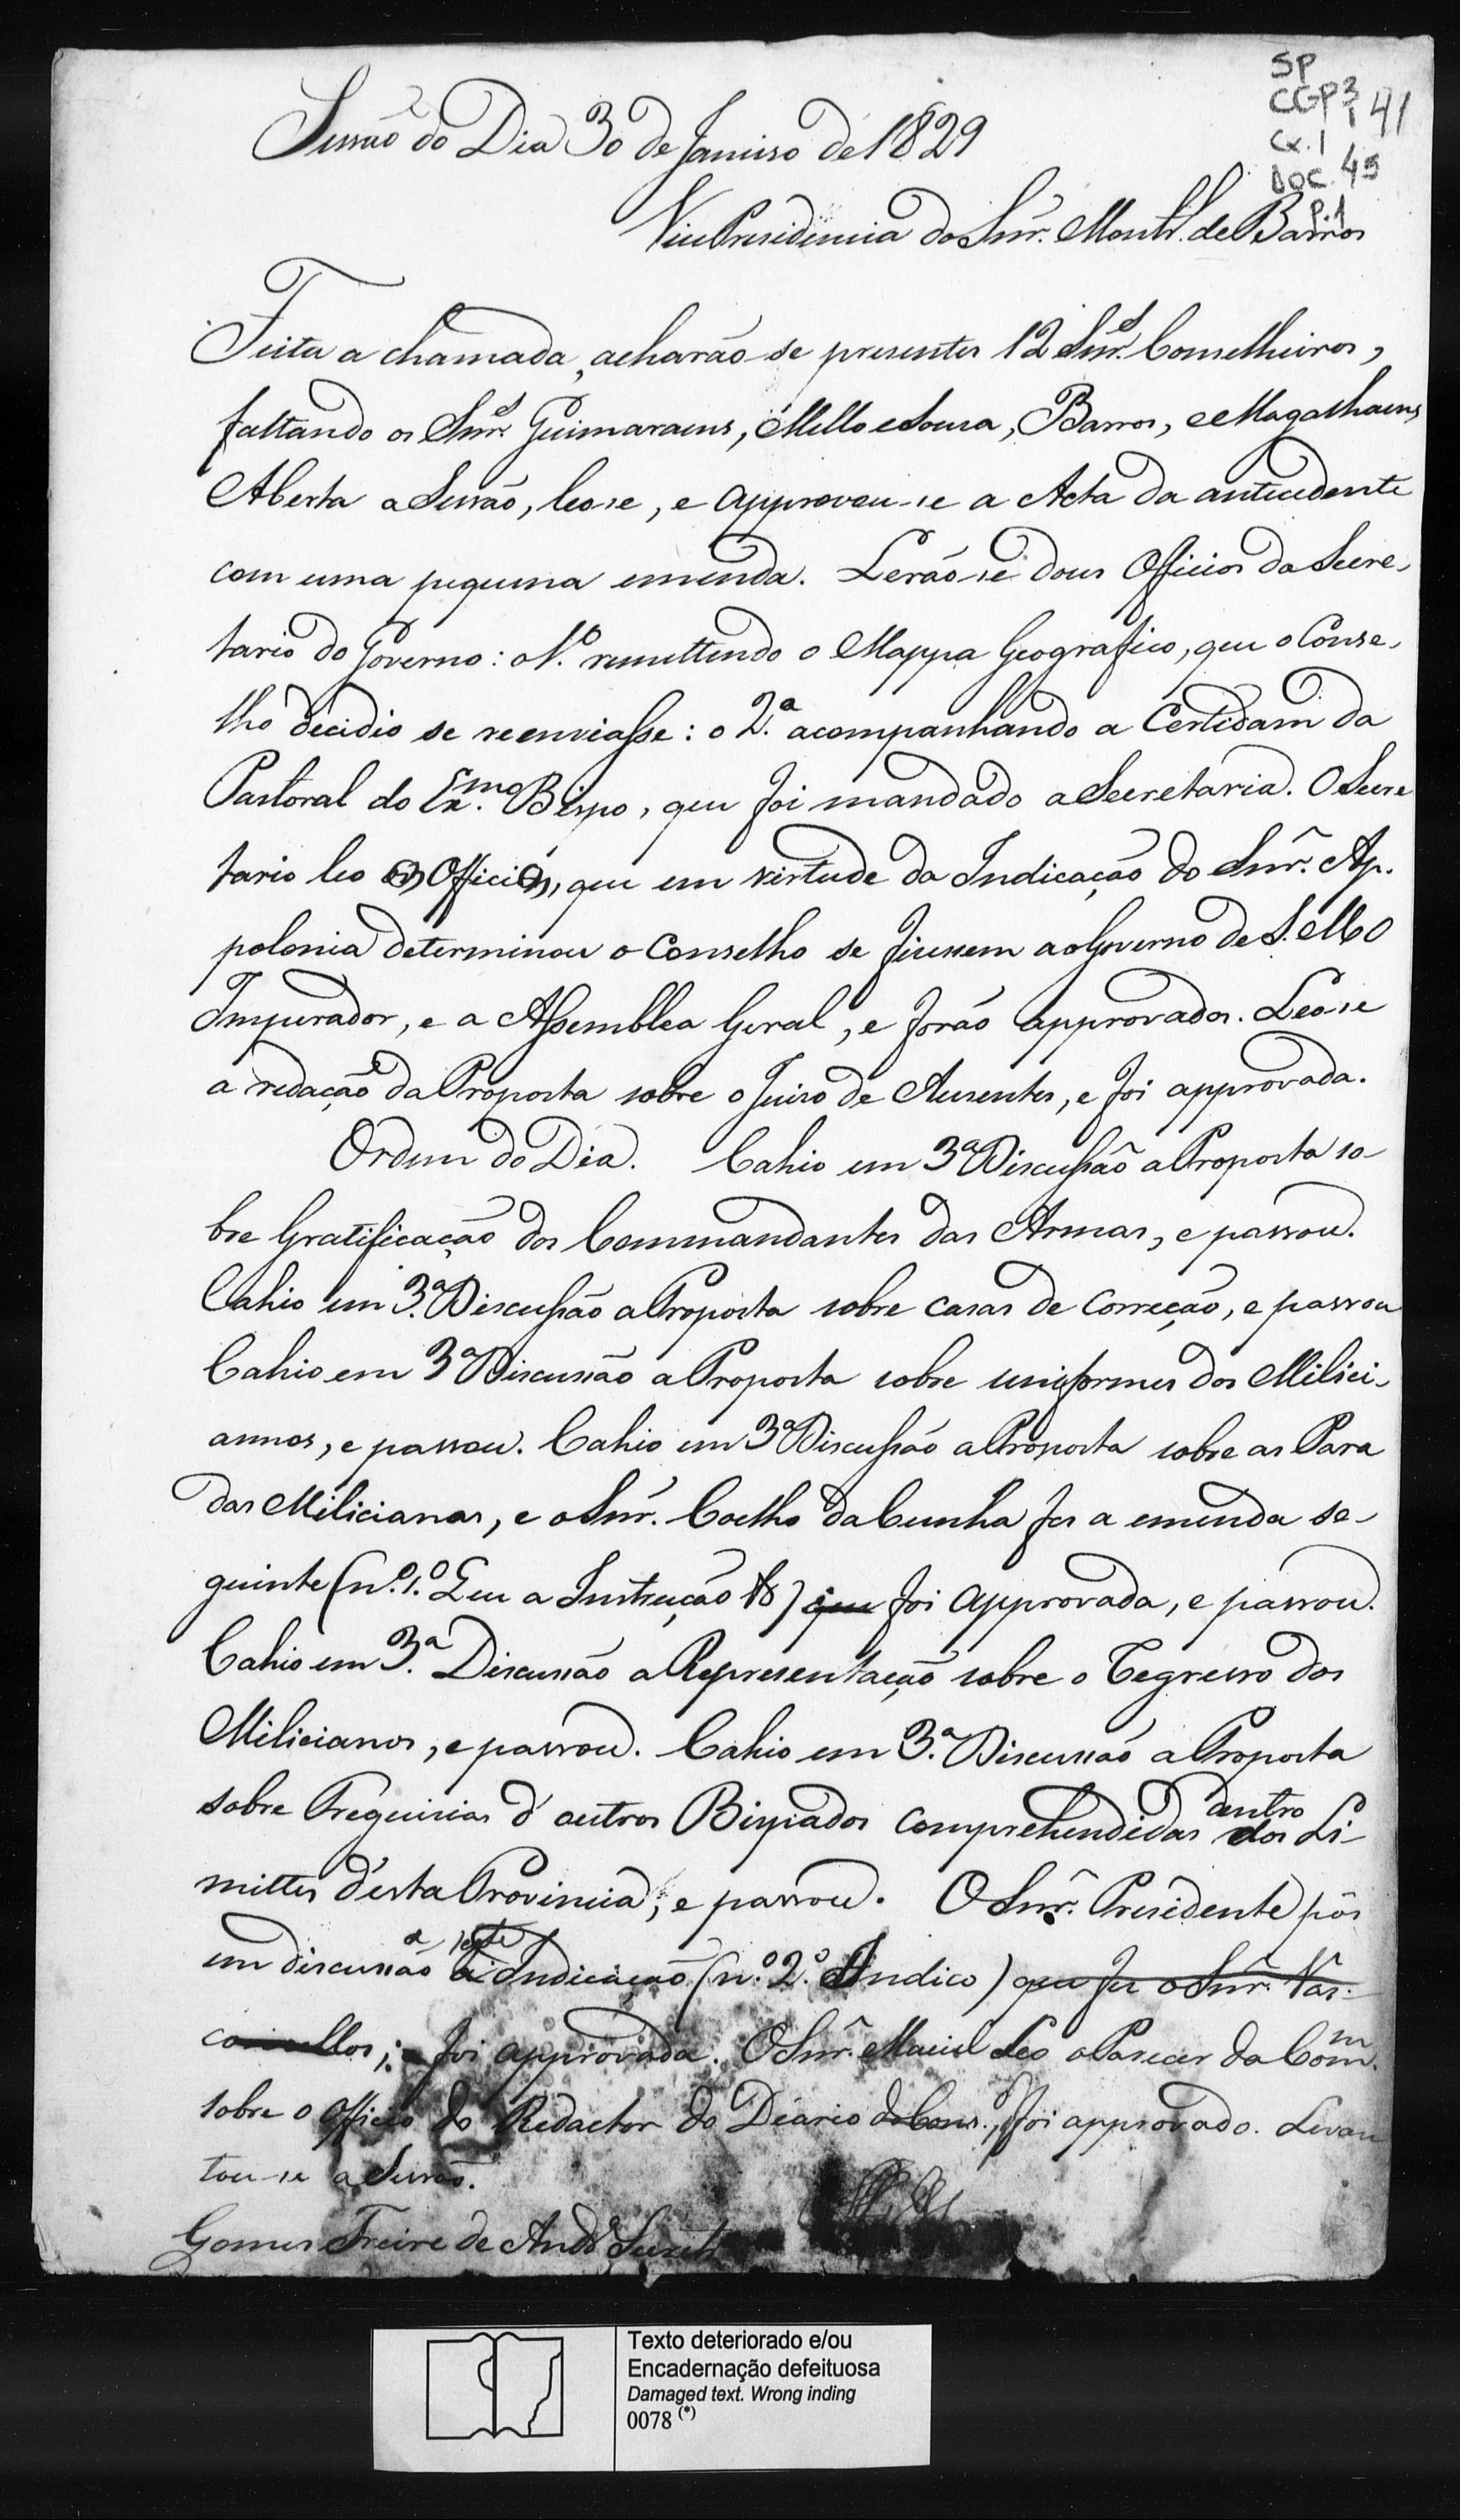 SP
CGP³ 1 41
Cx. 1
DOC. 45
P.1
Sessão do Dia 30 de Janeiro de 1829
Vice Presidencia do Snr. Montr. de Barros
Feita a chamada, acharão-se presentes 12 Snr.s Conselheiros,
faltando os Snr.s Guimaraens, Mello e Souza, Barros, e Magalhaens
Aberta a Sessão, leo-se, e approvou-se a Acta da antecedente
com uma pequena emenda. Lerão-se dous Officios do Secre-
tario do Governo: o 1.º remettendo o Mappa Geografico, que o Conse-
lho decidio se reenviasse: o 2.ª acompanhando a Certidam da
Pastoral do Ex.mo Bispo, que foi mandado a Secretaria. O Secre
tario leo os Officios, que em virtude da Indicação do Snr. Ap-
polonia determinou o Conselho se fizessem ao Governo de S. M. O
Imperador, e a Assemblea Geral, e forão approvados. Leo-se
a redação da Proposta sobre o Juiso de Ausentes, e foi approvada.
Ordem do Dia. Cahio em 3ª Discussão a Proposta so-
bre Gratificação dos Commandantes das Armas, e passou.
Cahio em 3.ª Discussão a Proposta sobre casas de Correção, e passou
Cahio em 3ª Discussão a Proposta sobre uniformes dos Milici-
annos, e passou. Cahio em 3ª Discussão a Proposta sobre as Para
das Milicianas, e o Snr. Coelho da Cunha fez a emenda se-
guinte (n.º 1.º Que a Instrucção &) que foi approvada, e passou.
Cahio em 3.ª Discussão a Representação sobre o Regresso dos
Milicianos, e passou. Cahio em 3.ª Discussão a Proposta
sobre Freguisias d'outros Bispados comprehendidas dentro dos Li-
mittes d'esta Provincia, e passou. O Snr. Presidente pôs
em discussão a Indicação (n.º 2.º Indico) que fez o Snr. Vas-
concellos; foi approvada. O Snr. Maciel Leo o Parecer da Com.m
sobre o Officio do Redactor do Diario do Cons.º, foi approvado. Levan
tou-se a Sessão.
Gomes Freire de And.e Secret.
Texto deteriorado e/ou
Encadernação defeituosa
Damaged text. Wrong inding
0078 (*)